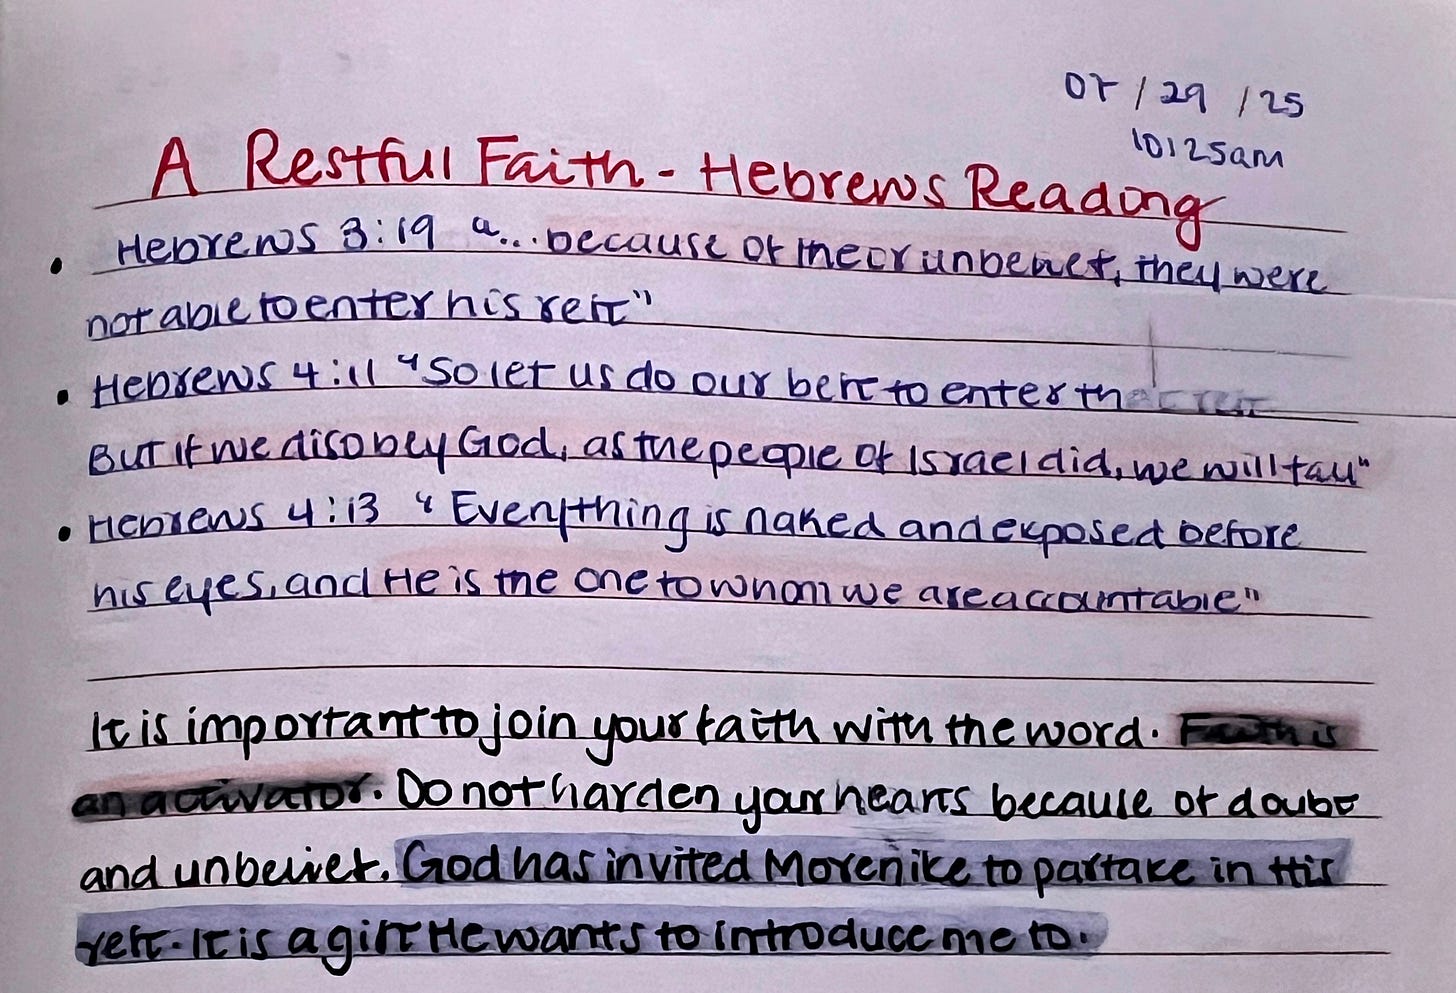 07 / 29 / 25
10:25am
A Restful Faith - Hebrews Reading
• Hebrews 3:19 "...because of their unbelief, they were
not able to enter his rest"
• Hebrews 4:11 "So let us do our best to enter that rest
But if we disobey God, as the people of Israel did, we will fall"
• Hebrews 4:13 "Everything is naked and exposed before
his eyes, and He is the one to whom we are accountable"
It is important to join your faith with the word. Faith is
an activator. Do not harden your hearts because of doubt
and unbelief. God has invited Morenike to partake in His
rest. It is a gift He wants to introduce me to.